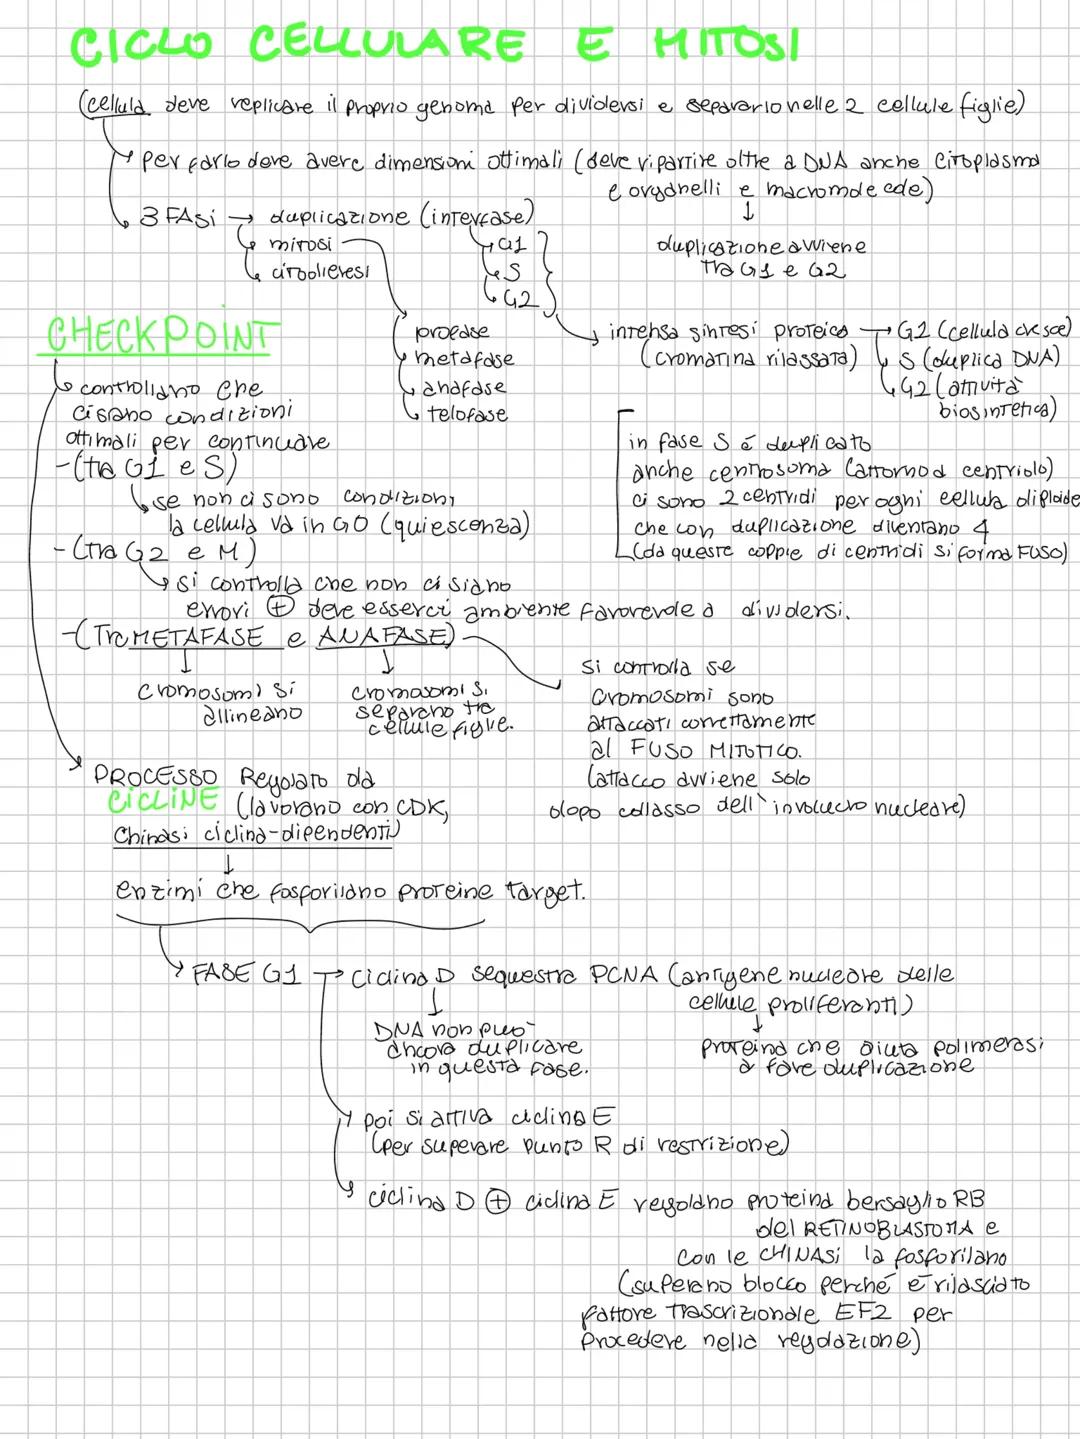 CICLO CELLULARE E MITOSI
(cellula deve replicare il proprio genoma per dividersi e separarlo nelle 2 cellule figlie)
per farlo deve avere dimensioni ottimali (deve ripartire oltre a DNA anche citoplasma
e organelli e macromolecole)
↓
duplicazione avviene
tra G1 e G2
3 FASI → duplicazione (interfase)
mitosi
citodieresi
G1
S
G2
profase
metafase
anafase
telofase
intensa sintesi proteica
(cromatina rilassata)
G2 (cellula cresce)
S (duplica DNA)
G2 (attività
biosintetica)
in fase S é duplicato
anche centrosoma (attorno a centriolo)
ci sono 2 centrioli per ogni cellula diploide
che con duplicazione diventano 4
(da queste coppie di centrioli si forma FUSO)
CHECKPOINT
controllano che
ci siano condizioni
ottimali per continuare
-(tra G1 e S)
se non ci sono condizioni
la cellula va in G0 (quiescenza)
-(tra G2 e M)
si controlla che non ci siano
errori ⊕ deve esserci ambiente favorevole a dividersi.
-(Tra METAFASE e ANAFASE)
↓ ↓
cromosomi si
allineano
cromosomi si
separano tra
cellule figlie.
si controlla se
cromosomi sono
attaccati correttamente
al FUSO MITOTICO.
(attacco avviene solo
dopo collasso dell'involucro nucleare)
PROCESSO Regolato da
CICLINE (lavorano con CDK,
Chinasi ciclina-dipendenti)
↓
enzimi che fosforilano proteine target.
FASE G1 → ciclina D sequestra PCNA (antigene nucleare delle
cellule proliferanti)
↓
DNA non può
ancora duplicare
in questa fase.
↓
proteina che aiuta polimerasi
a fare duplicazione
poi si attiva ciclina E
(per superare punto R di restrizione)
ciclina D ⊕ ciclina E regolano proteina bersaglio RB
del RETINOBLASTOMA e
con le CHINASI la fosforilano
(superano blocco perché é rilasciato
fattore trascrizionale EF2 per
procedere nella regolazione)